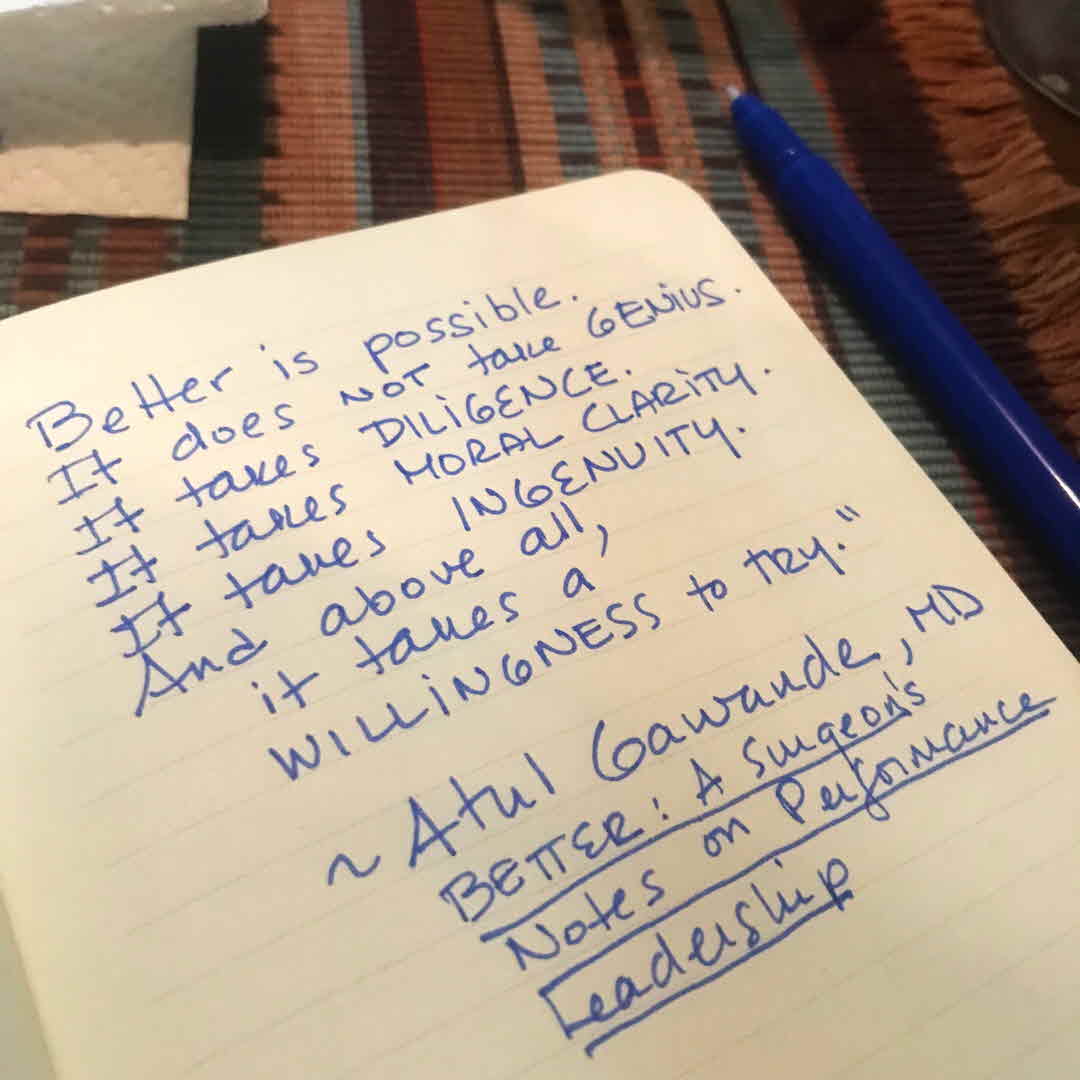 Better is possible.
It does NOT take GENIUS.
It takes DILIGENCE.
It takes MORAL CLARITY.
It takes INGENUITY.
And above all,
it takes a
WILLINGNESS to TRY."
~ Atul Gawande, MD
BETTER: A Surgeon's
Notes on Performance
Leadership